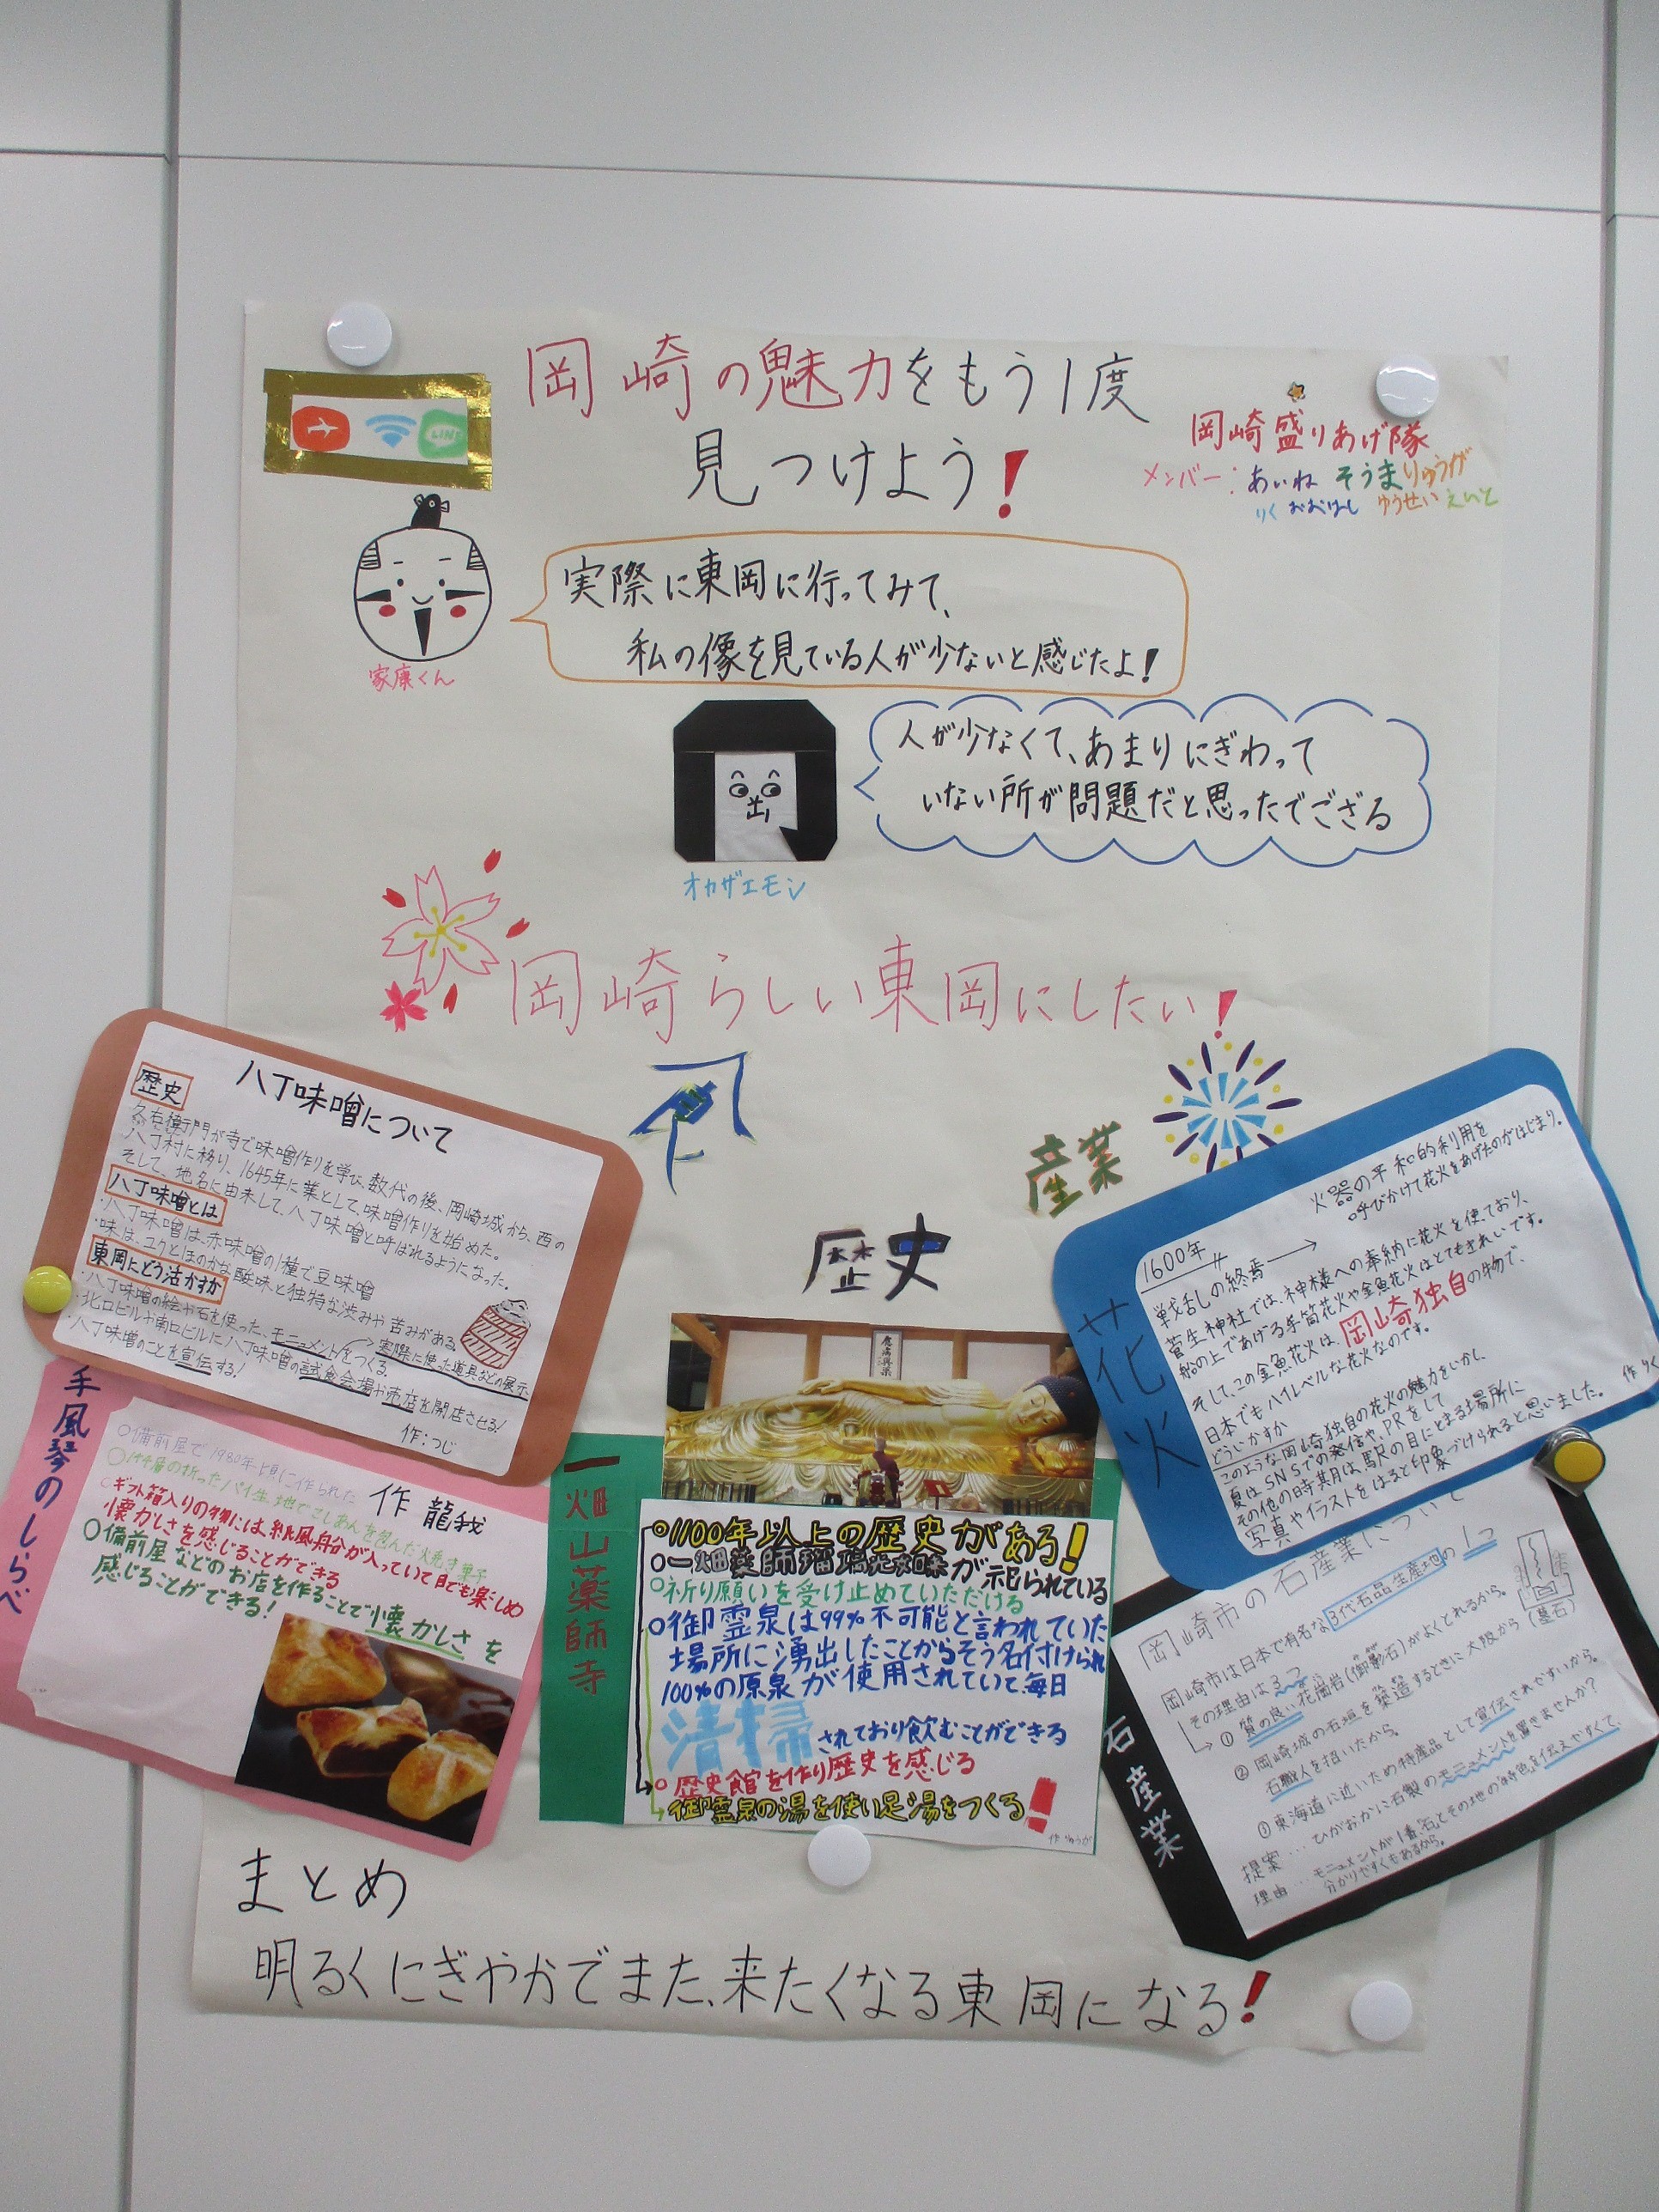 岡崎の魅力をもう1度
見つけよう!
LINE
岡崎盛りあげ隊
メンバー：あいね そうま りゅうが
りく おおはし ゆうせい えいと
実際に東岡に行ってみて、
私の像を見ている人が少ないと感じたよ!
家康くん
人が少なくて、あまりにぎわって
いない所が問題だと思ったでござる
オカザエモン
岡崎らしい東岡にしたい!
八丁味噌について
歴史
久右衛門が寺で味噌作りを学び、数代の後、岡崎城から、西の
八丁村に移り、1645年に業として、味噌作りを始めた。
そして、地名に由来して、八丁味噌と呼ばれるようになった。
八丁味噌とは
・八丁味噌は、赤味噌の1種で豆味噌
・味は、コクとほのかな酸味と独特な渋みや苦みがある
東岡にどう活かすか
・八丁味噌の絵や石を使った、モニュメントをつくる
→実際に使った道具などの展示
・北口ビルや南口ビルに八丁味噌の試食会場や売店を開店させる!
・八丁味噌のことを宣伝する!
作:つじ
産業
歴史
花火
火器の平和的利用を
呼びかけて花火をあげたのがはじまり。
1600年
戦乱しの終焉
菅生神社では、神様への奉納に花火を使ており、
船の上であげる手筒花火や金魚花火はとてもきれいです。
そして、この金魚花火は、岡崎独自の物で、
日本でもハイレベルな花火なのです。
どういかすか
このような岡崎独自の花火の魅力をいかし、
夏は、SNSでの発信や、PRをして
その他の時期は、駅の目にとまる場所に
写真やイラストをはると印象づけられると思いました。
作 りく
手風琴のしらべ
作 龍我
○備前屋で1980年頃に作られた
○ギフト箱入りの物には、紙風舟分が入っていて目でも楽しめ
懐かしさを感じることができる
○備前屋などのお店を作ることで懐かしさを
感じることができる!
一畑山薬師寺
○1100年以上の歴史がある!
○一畑薬師瑠璃光如来が祀られている
○祈り願いを受け止めていただける
○御霊泉は99%不可能と言われていた
場所に湧出したことからそう名付けられ
100%の原泉が使用されていて、毎日
清掃されており飲むことができる
○歴史館を作り歴史を感じる
御霊泉の湯を使い足湯をつくる!
作 りゅうが
石産業
岡崎市の石産業について
岡崎市は日本で有名な3代石品生産地の1つ
その理由は3つ
①質の良い花崗岩(御影石)がよくとれるから。
②岡崎城の石垣を築造するときに大阪から
石職人を招いたから。
(墓石)
③東海道に近いため特産品として宣伝されやすいから。
提案…ひがおかに石製のモニュメントを置きませんか?
理由…モニュメントが1番、石とその地の特色を伝えやすくて、
分かりやすくもあるから。
まとめ
明るくにぎやかでまた、来たくなる東岡になる!